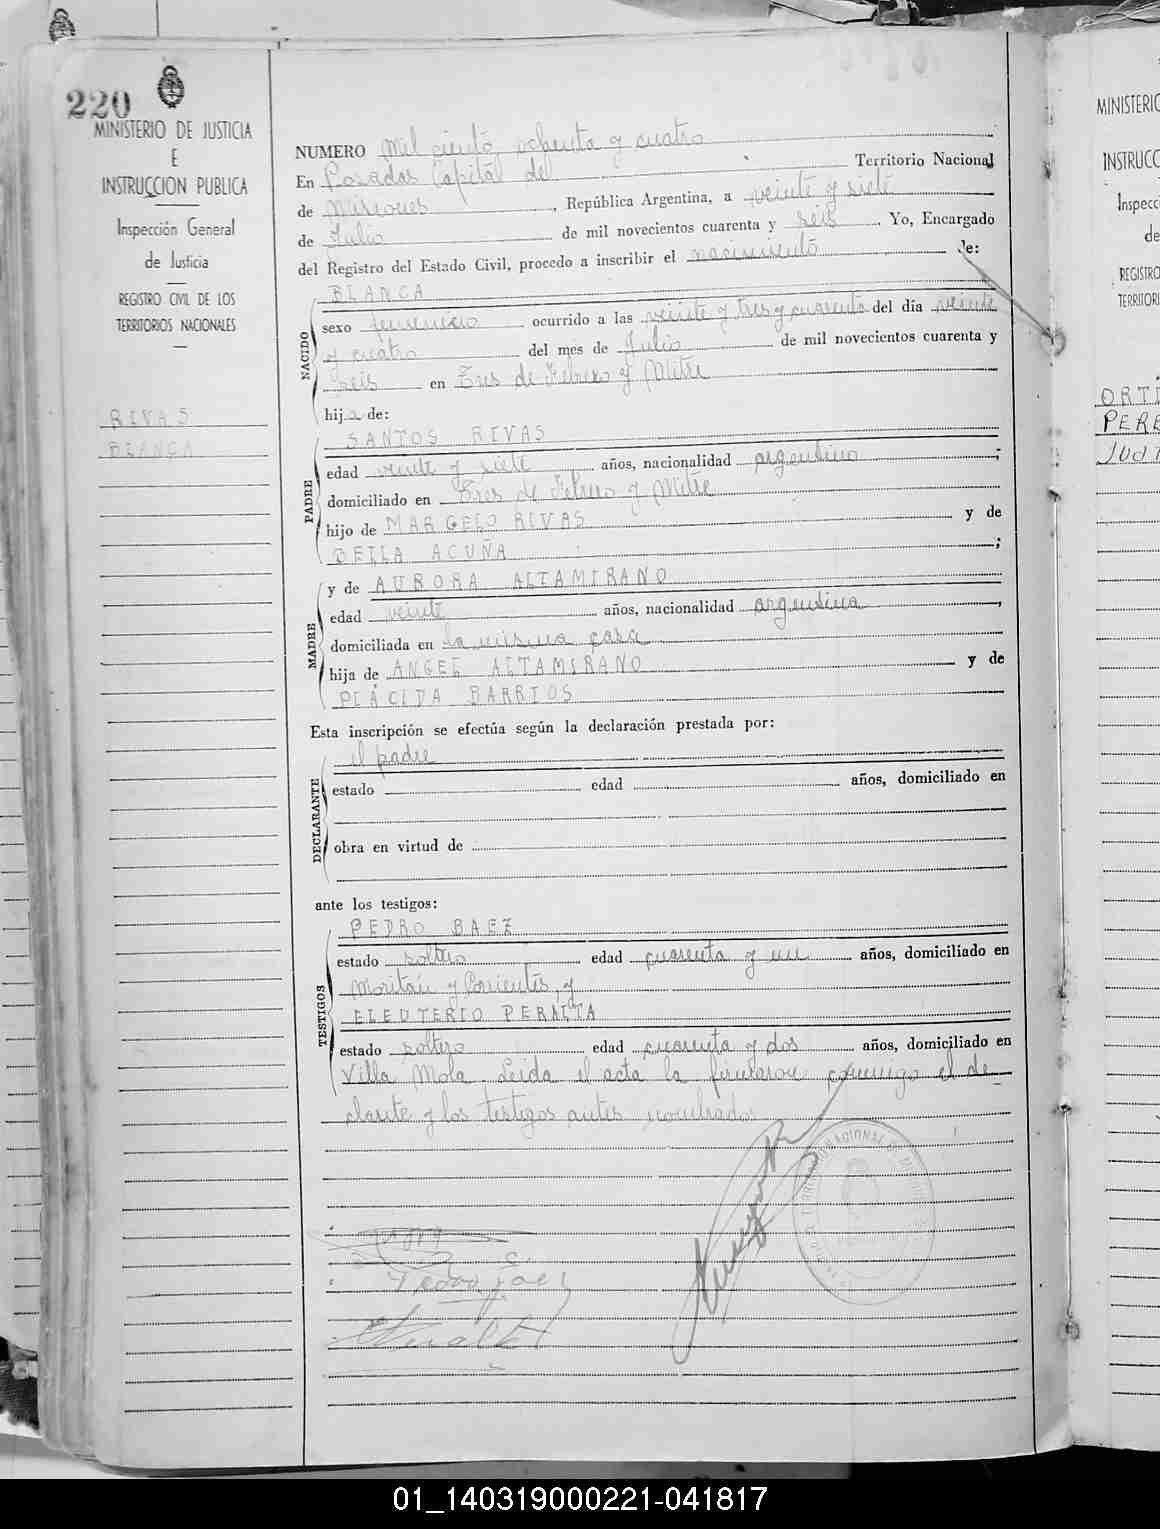 220
MINISTERIO DE JUSTICIA
E
INSTRUCCION PUBLICA
Inspección General
de Justicia
REGISTRO CIVIL DE LOS
TERRITORIOS NACIONALES
RIVAS
BLANCA
NUMERO Mil ciento ochenta y cuatro
En Posadas Capital del Territorio Nacional
de Misiones, República Argentina, a veinte y siete
de Julio de mil novecientos cuarenta y seis. Yo, Encargado
del Registro del Estado Civil, procedo a inscribir el nacimiento de:
NACIDO
BLANCA
sexo femenino ocurrido a las veinte y tres y cuarenta del día veinte
y cuatro del mes de Julio de mil novecientos cuarenta y
seis en Tres de Febrero y Mitre
hija de:
PADRE
SANTOS RIVAS
edad veinte y siete años, nacionalidad argentino;
domiciliado en Tres de Febrero y Mitre
hijo de MARCELO RIVAS y de
DELIA ACUÑA;
MADRE
y de AURORA ALTAMIRANO
edad veinte años, nacionalidad argentina,
domiciliada en la misma casa
hija de ANGEL ALTAMIRANO y de
PLÁCIDA BARRIOS
Esta inscripción se efectúa según la declaración prestada por:
DECLARANTE
el padre
estado edad años, domiciliado en
obra en virtud de
ante los testigos:
TESTIGOS
PEDRO BAEZ
estado soltero edad cuarenta y un años, domiciliado en
y Corrientes, y
ELEUTERIO PERALTA
estado soltero edad cuarenta y dos años, domiciliado en
Villa Mola. Leida el acta la firmaron conmigo el de_
clarante y los testigos antes nombrados
MINISTERIO
INSTRUCC
Inspecc
de
REGISTRO
TERRITORI
ORTI
PERE
JUDI
01_140319000221-041817